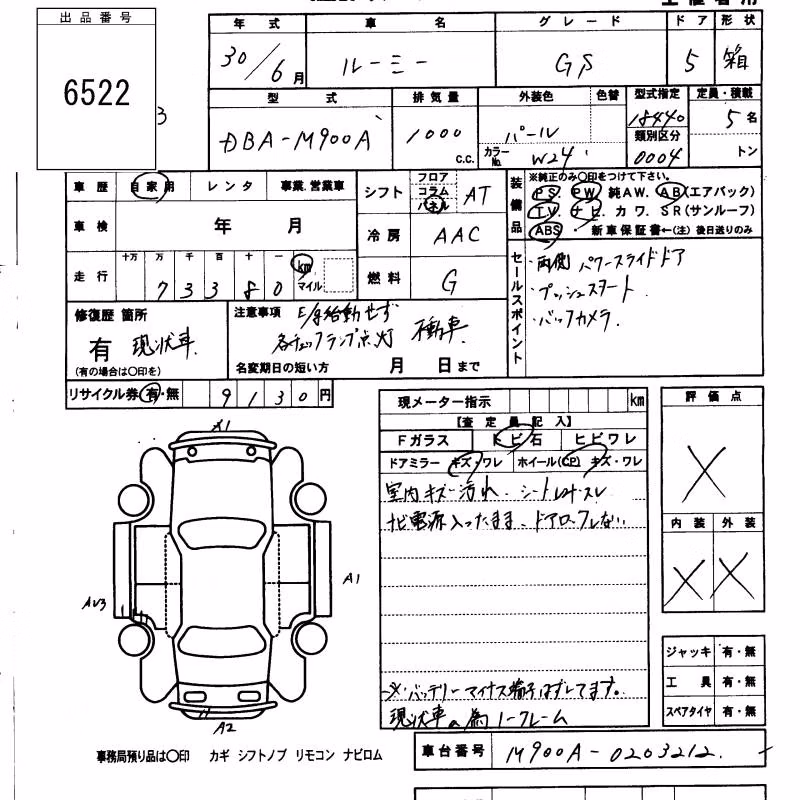 出品番号
6522
3
年式 車名 グレード ドア 形状
30/6月 ルーミー GS 5 箱
型式 排気量 外装色 色替 型式指定 定員・積載
DBA-M900A 1000 C.C. パール 18440 5名
カラーNo. W24 類別区分 0004 トン
車歴 自家用 レンタ 事業.営業車
シフト フロア コラム パネル AT
装備品 ※純正のみ○印をつけて下さい。
PS PW 純AW. AB(エアバック)
TV. ナビ. カワ. SR(サンルーフ)
ABS ・ 新車保証書←(注) 後日送りのみ
車検 年 月
冷房 AAC
走行 十万 万 千 百 十 一 km マイル
73380
燃料 G
セールスポイント
・両側 パワースライドドア
・プッシュスタート
・バックカメラ.
修復歴 箇所
有 現状車.
(有の場合は○印を)
注意事項 E/g始動せず
各チェックランプ点灯 不動車
名変期日の短い方 月 日まで
リサイクル券 有・無 9130円
現メーター指示 km
【査定員記入】
Fガラス トビ石 ヒビワレ
ドアミラー キズ・ワレ ホイール(CP) キズ・ワレ
室内キズ・汚れ. シートスレ
ナビ電源入ったまま.
※・バッテリーマイナス端子はずしてます。
現状車の為ノークレーム
評価点
X
内装 外装
X X
A1
A1
AU3
A2
ジャッキ 有・無
工具 有・無
スペアタイヤ 有・無
事務局預り品は○印 カギ シフトノブ リモコン ナビロム
車台番号 M900A-0203212.